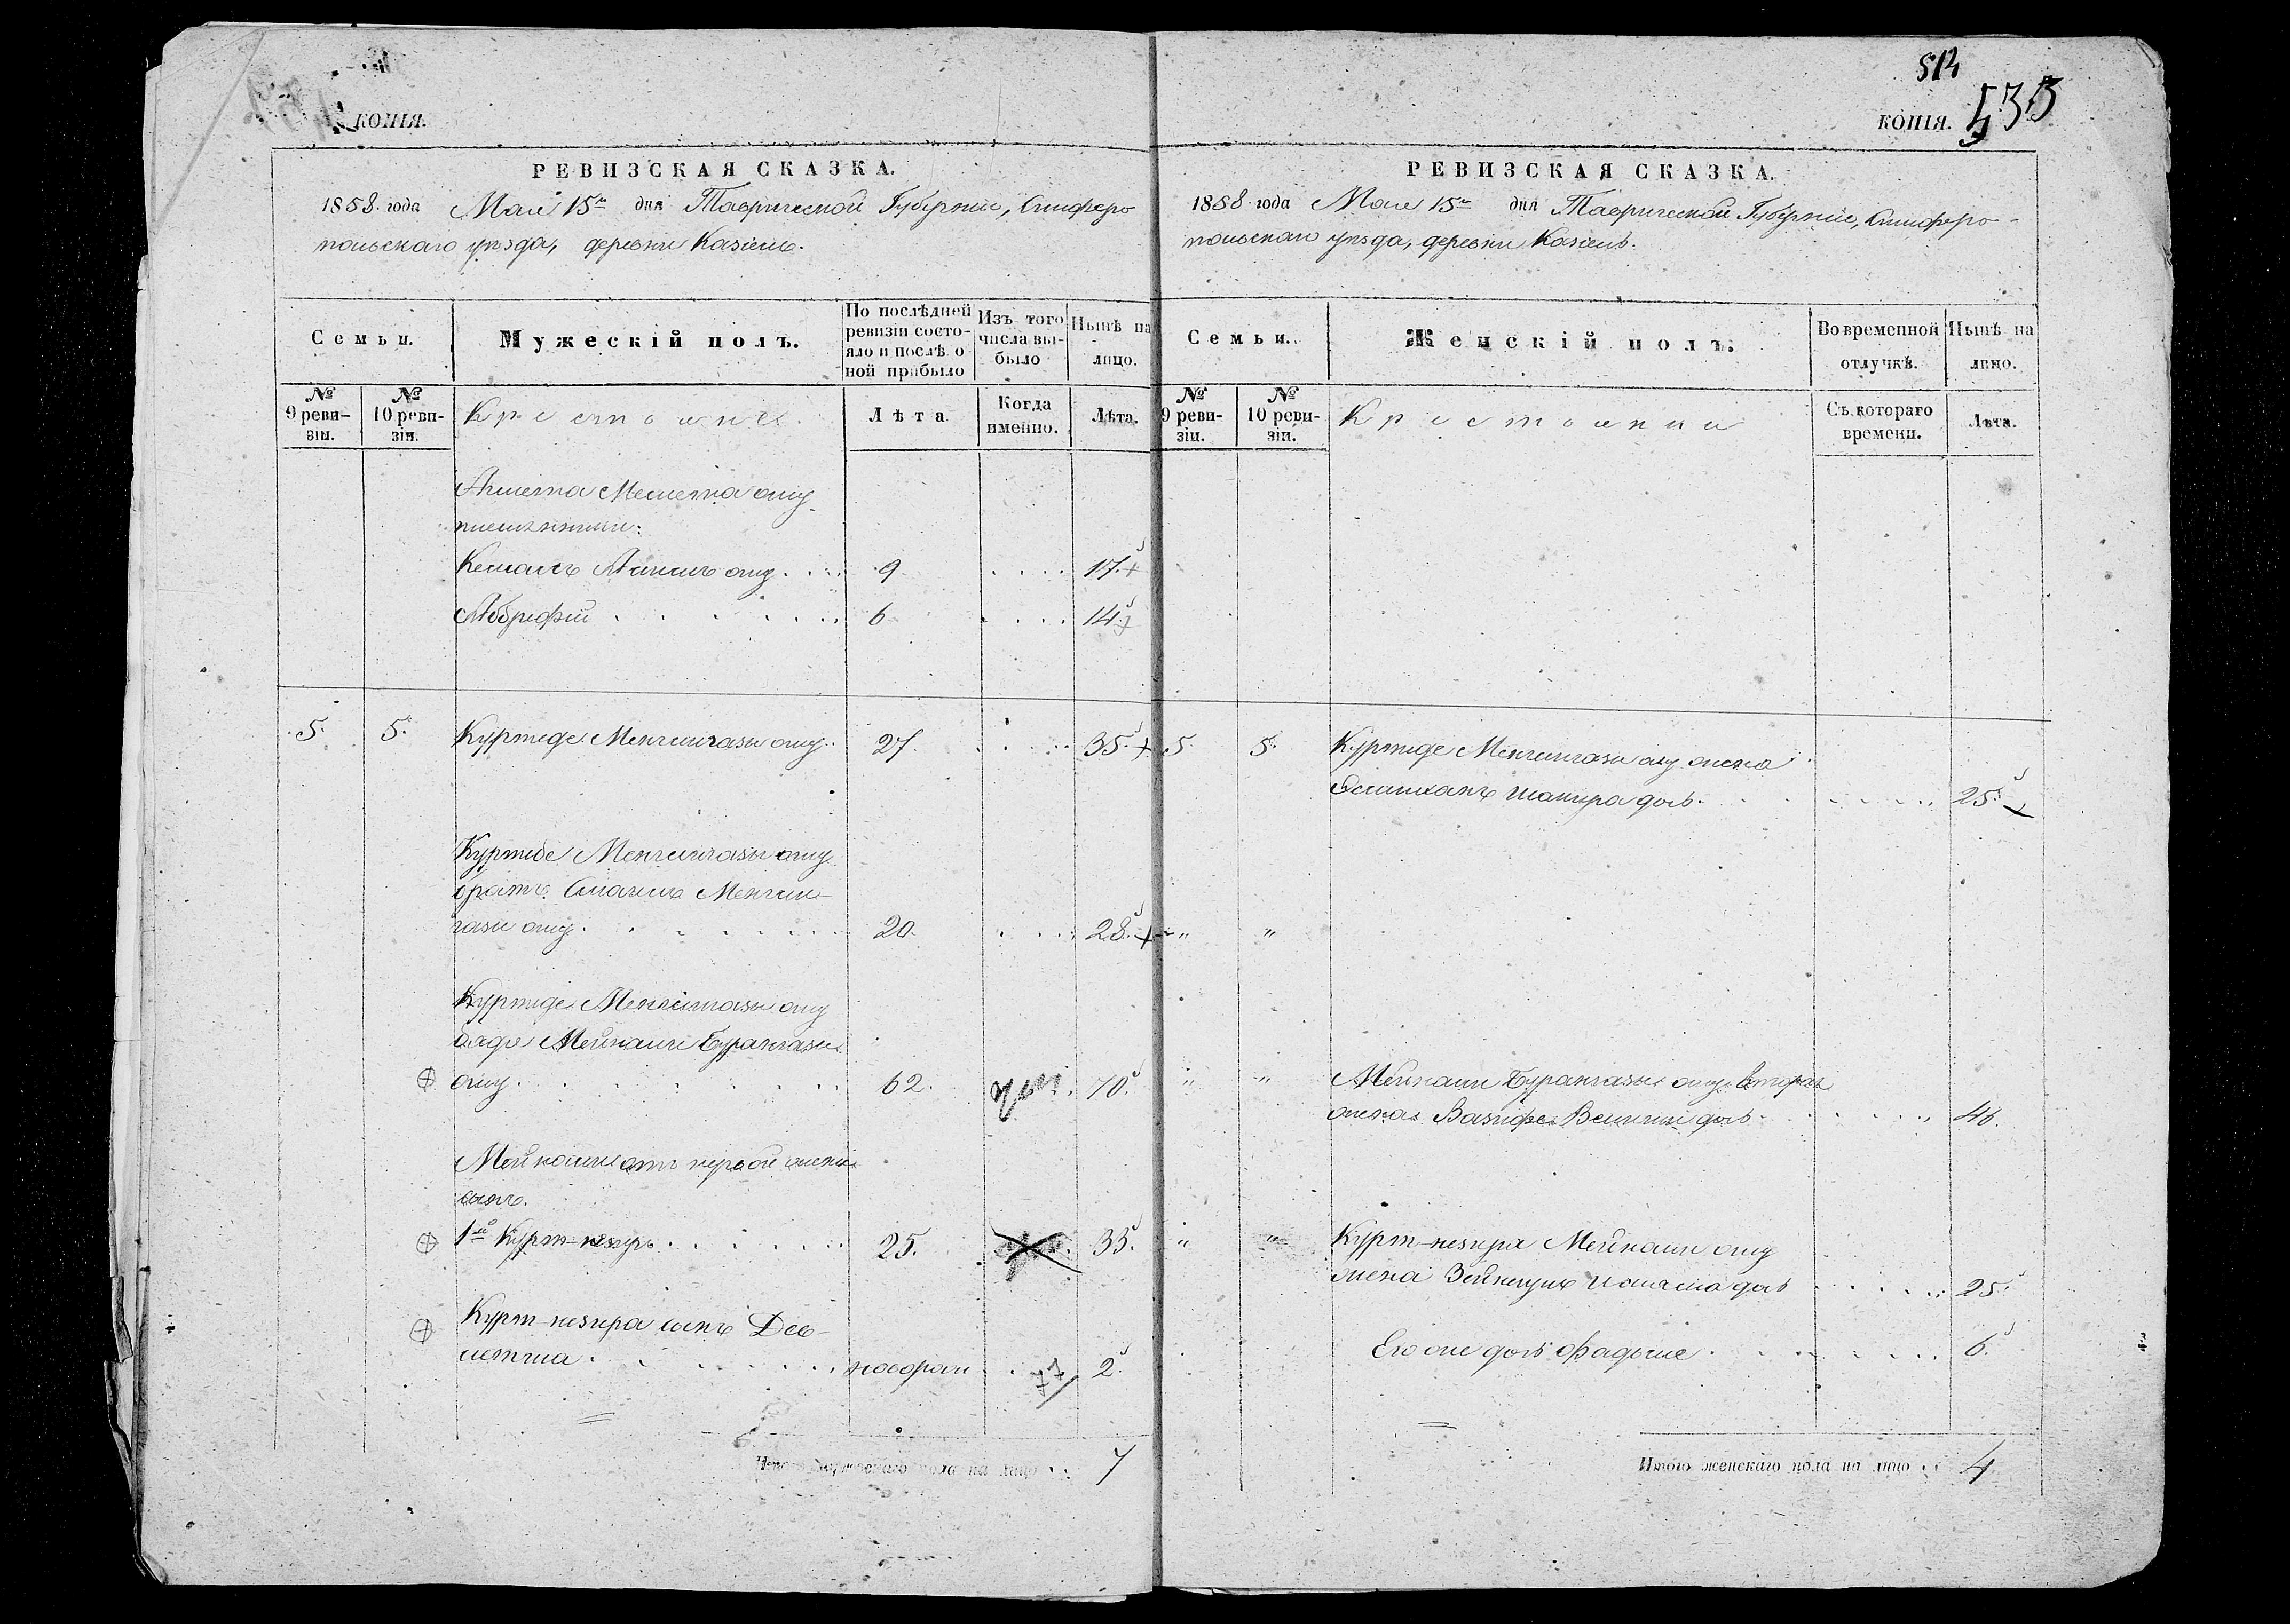 КОПІЯ.
РЕВИЗСКАЯ СКАЗКА.
1858 года Мая 15го дня Таврической Губерніи, Симферо
польскаго уѣзда, деревни Казіевъ.
Семьи.
Мужескій полъ.
По послѣдней
ревизіи состо-
яло и послѣ о
ной прибыло
Изъ того
числа вы-
было
Нынѣ на
лицо.
№
9 реви-
зіи.
№
10 реви-
зіи.
Крестьяне.
Лѣта.
Когда
именно.
Лѣта.
Мемета оглу
племянники:
Кемаль оглу 9 17.
6 14.
5. 5. Куртиде Менглигазы оглу 27. 35.
Куртиде Менглигазы оглу
братъ Смаилъ Менгли-
газы оглу 20. 28.
Куртиде Менглигазы оглу
дядя Мейнаши Бурангазы
оглу 62. 70.
Мейнаши отъ первой жены
сынъ.
1й Курт-незиръ 25. 33.
Курт-незира сынъ Дев-
летша новорож 2.
77
Итого мужескаго пола на лицо 7
512
КОПІЯ. 533
РЕВИЗСКАЯ СКАЗКА.
1858 года Мая 15го дня Таврической Губерніи, Симферо-
польскаго уѣзда, деревни Казіевъ.
Семьи.
Женскій полъ.
Во временной
отлучкѣ.
Нынѣ на
лицо.
№
9 реви-
зіи.
№
10 реви-
зіи.
Крестьянки
Съ котораго
времени.
Лѣта.
5. 5. Куртиде Менглигазы оглу жена
Шакира дочь 25.
" "
" " Мейнаши Бурангазы оглу вторая
жена Вазифе Велиши дочь 46.
" " Курт-незира Мейнаши оглу
жена Зейнепъ Исляма дочь 25.
Его же дочь Фадьме 6.
Итого женскаго пола на лицо 4